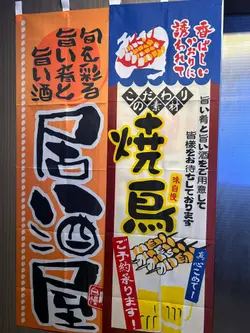 香ばしい
かおりに
誘われて
こだわり
の素材
旨い肴と旨い酒をご用意して
皆様をお待ちしております
焼鳥
味自慢
真心こめて!
ご予約承ります!
旬を彩る
旨い肴と
旨い酒
居酒屋